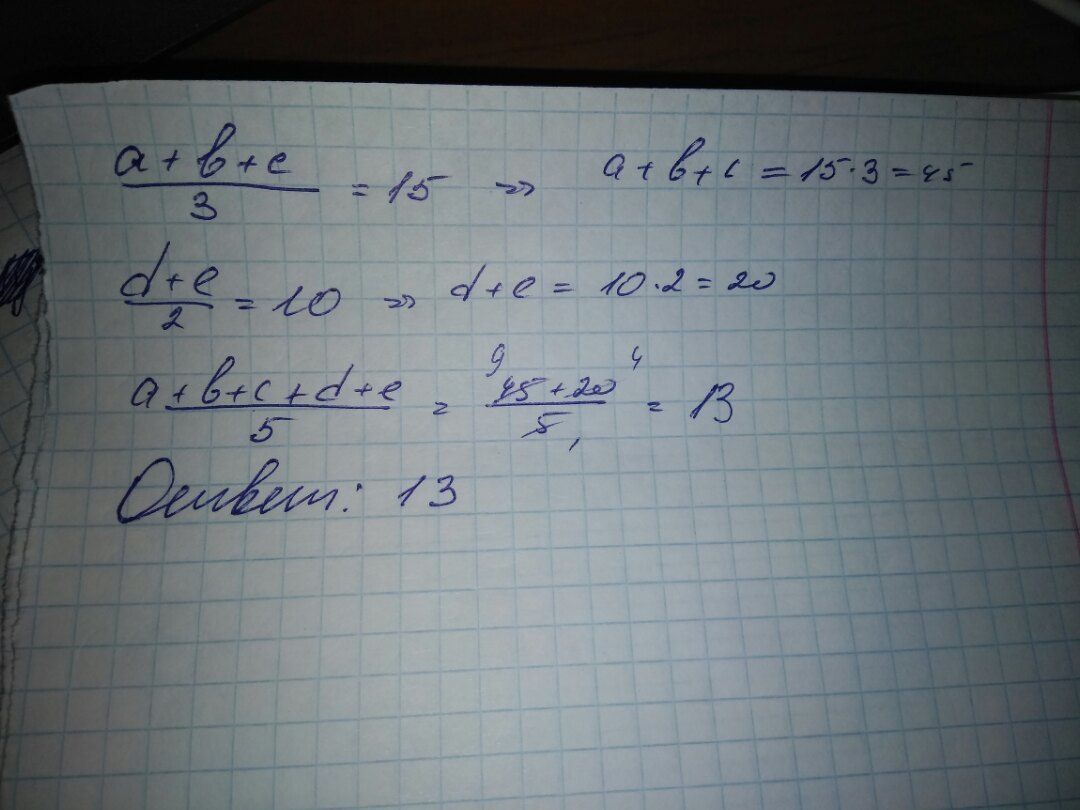 (a+b+c)/3 = 15 => a+b+c = 15·3 = 45
(d+e)/2 = 10 => d+e = 10·2 = 20
(a+b+c+d+e)/5 = (45 9 + 20 4)/5 1 = 13
Ответ: 13